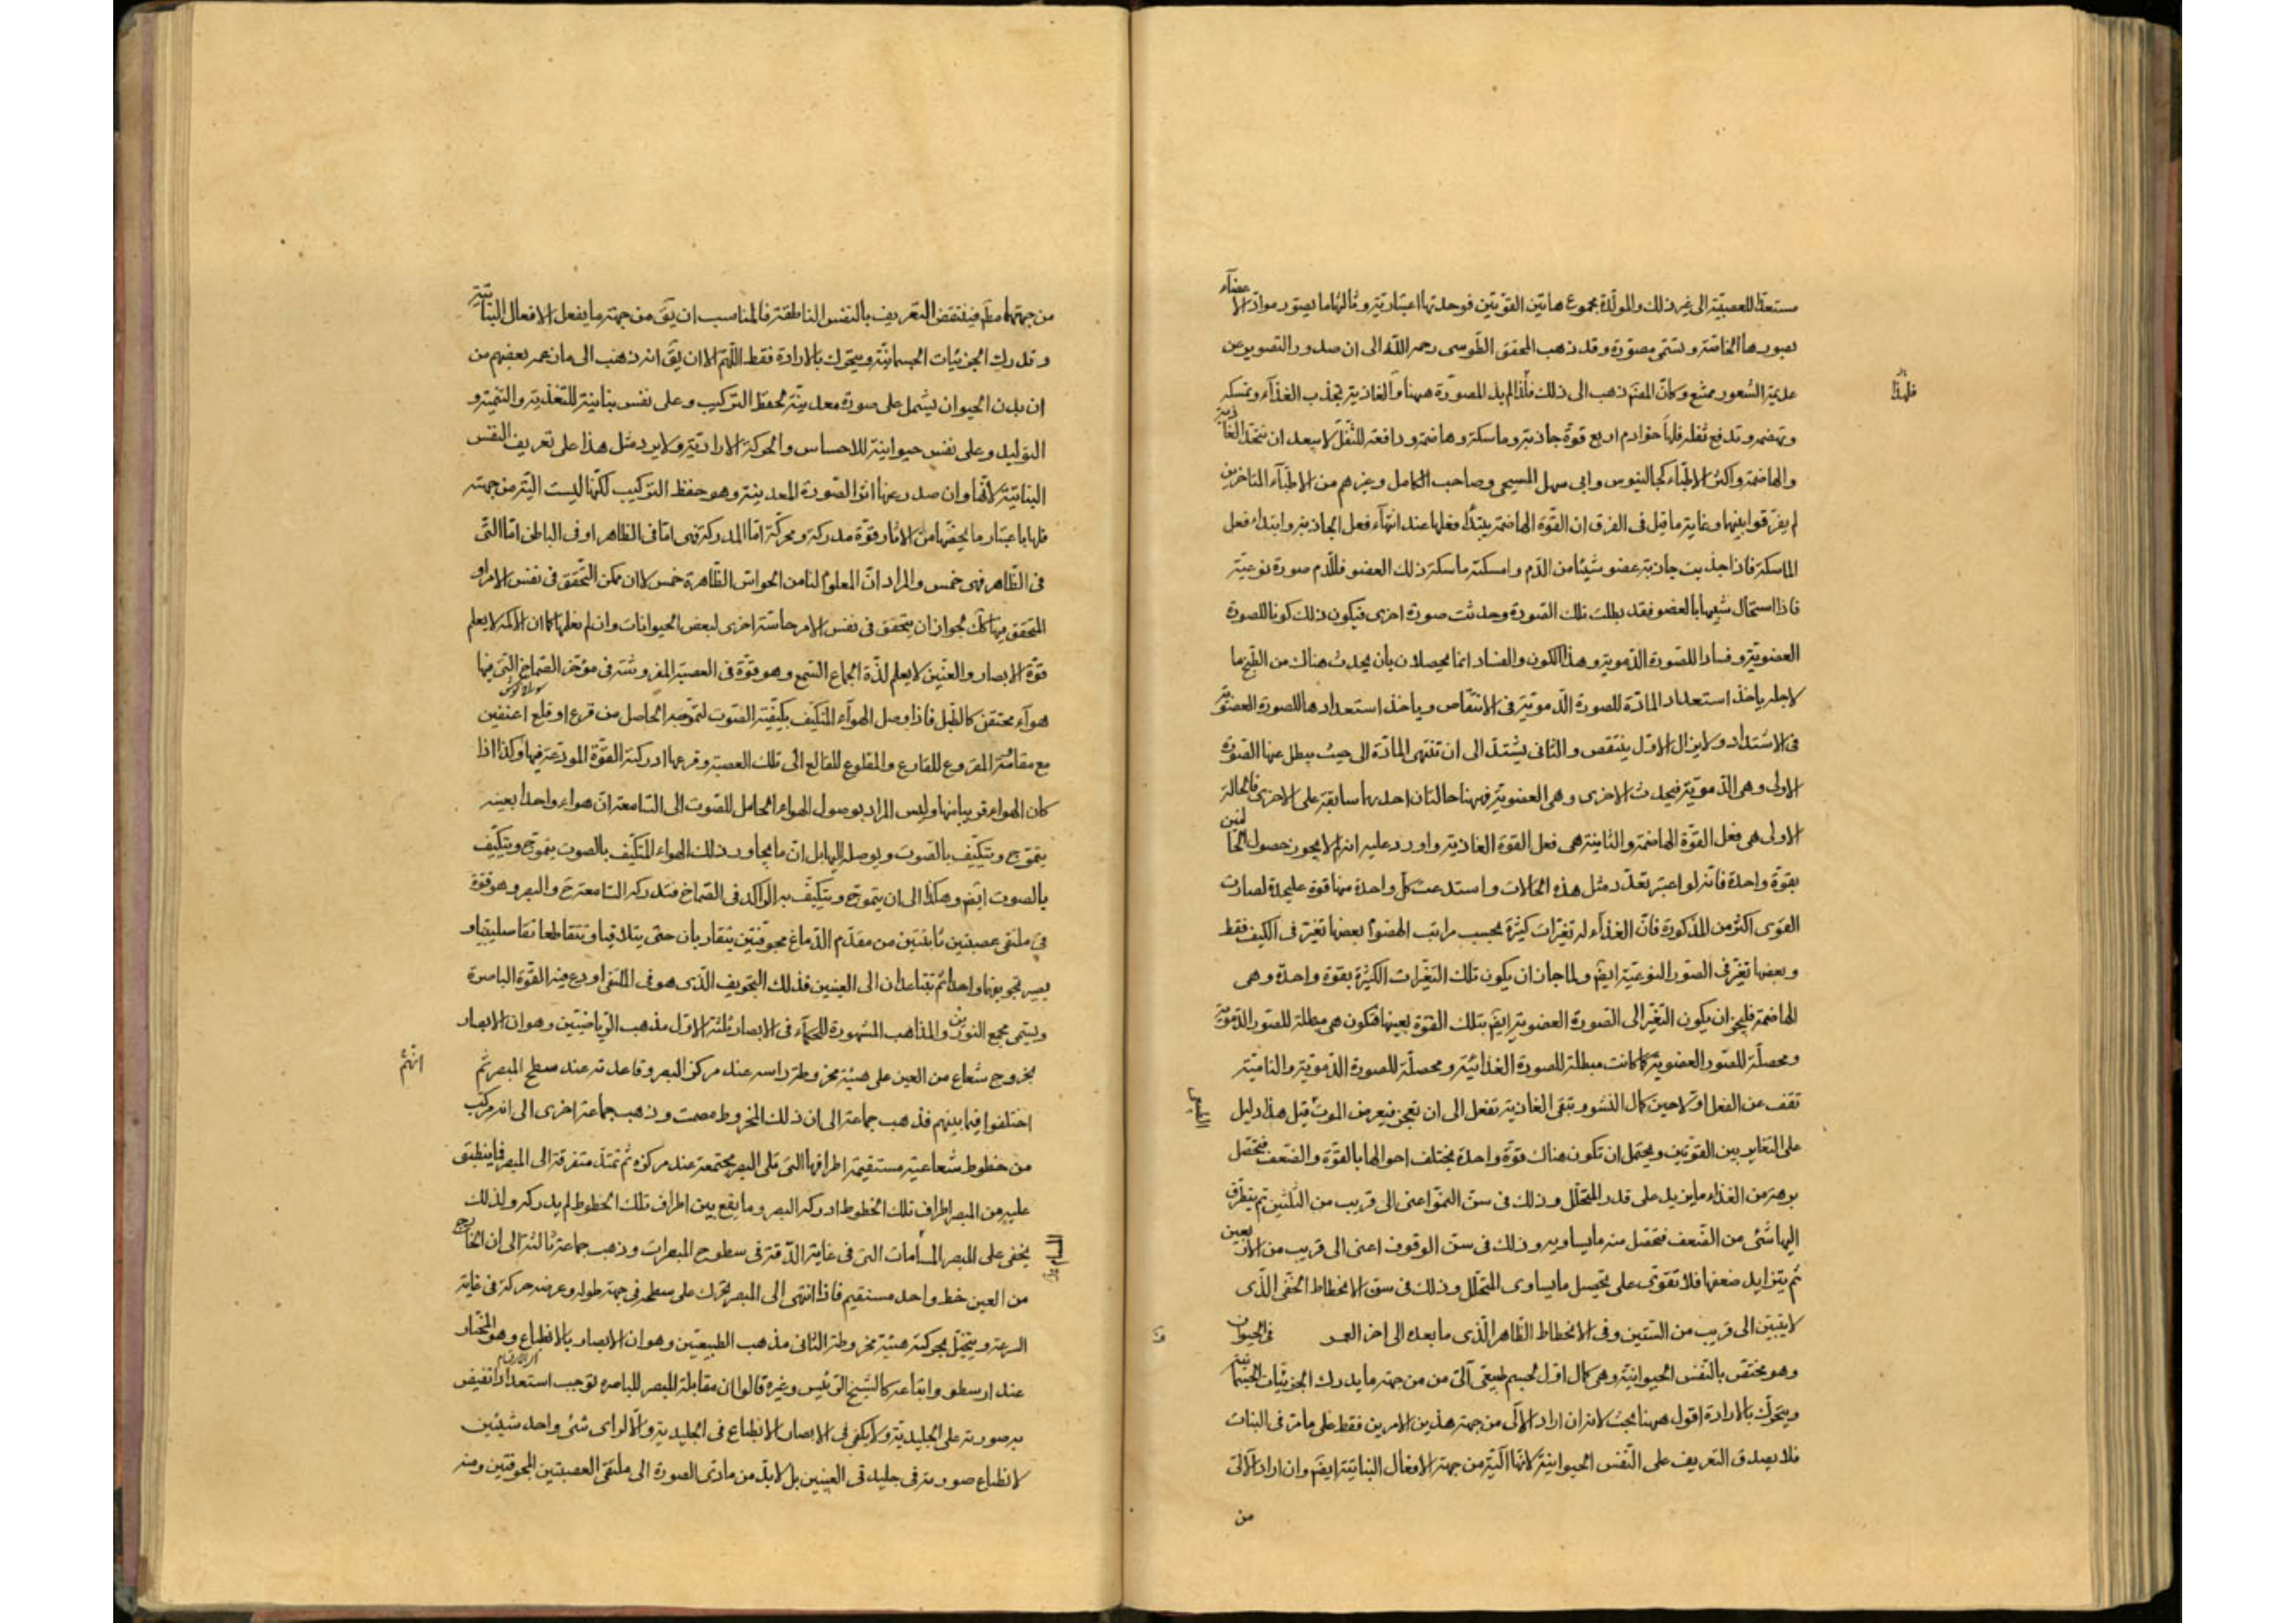 مستعدّا للعصبيّة الى غير ذلك والمولّدة مجموع هاتين القوّتين فوحدتها اعتباريّة وثالثها ما يصوّر موادّ الاعضآء
بصورها الخاصّة وتسمّى مصوّرة وقد ذهب المحقق الطّوسى رحمه اللّه الى ان صدور التصوير عن
عديمة الشّعور ممتنع وكانّ المصنّف ذهب الى ذلك فلذا لم يذكر المصوّرة ههنا والغاذية تجذب الغذآء وتمسكه
فلهذا
وتهضمه وتدفع ثفله فلها خوادم اربع قوّة جاذبة وماسكة وهاضمة ودافعة للثّفل لا يبعد ان تتّحد الغاذية
والهاضمة واكثر الاطبّاء كجالينوس وابى سهل المسيحى وصاحب الكامل وغيرهم من الاطبّآء المتاخرين
لم يفرّقوا بينهما وغاية ما قيل فى الفرق ان القوّة الهاضمة يبتدأ فعلها عند انتهآء فعل الجاذبة وابتداء فعل
الماسكة فاذا جذبت جاذبة عضو شيئا من الدّم وامسكته ماسكة ذلك العضو فللدّم صورة نوعيّة
فاذا استحال شبيها بالعضو فقد بطلت تلك الصّورة وحدثت صورة اخرى فيكون ذلك كونا للصورة
العضويّة وفسادا للصّورة الدّمويّة وهذا الكون والفساد انما يحصلان بان يحدث هناك من الطّبخ ما
لاجله ياخذ استعداد المادّة للصورة الدّمويّة فى الانتقاص وياخذ استعدادها للصورة العضويّة
فى الاشتداد ولا يزال الاوّل ينتقص والثّانى يشتدّ الى ان تنتهى المادّة الى حيث يبطل عنها الصّورة
الاولى وهى الدّمويّة فيحدث الاخرى وهى العضويّة فههنا حالتان احديهما سابقة على الاخرى فالحالة
الاولى هى فعل القوّة الهاضمة والثّانية هى فعل القوّة الغاذية واورد عليه انه لم لا يجوز حصول الحالتين
بقوّة واحدة فانه لو اعتبر تعدّد مثل هذه الحالات واستدعت كلّ واحدة منها قوة عليحدة لصارت
القوى اكثر من المذكورة فانّ الغذآء له تغيّرات كثيرة بحسب مراتب الهضوم بعضها تغيّر فى الكيف فقط
وبعضها تغيّر فى الصّور النوعيّة ايضً ولما جاز ان يكون تلك التغيّرات الكثيرة بقوة واحدة وهى
الهاضمة فليجز ان يكون التغيّر الى الصّورة العضوية ايضً بتلك القوّة بعينها فتكون هى مبطلة للصّور الدّمويّة
ومحصلة للصّور العضويّة كما كانت مبطلة للصورة الغذائيّة ومحصلة للصورة الدّمويّة والنامية
تقف عن الفعل اوّلا حين كمال النشو وتبقى الغاذية تفعل الى ان تعجز فيعرض الموت قيل هذا دليل
على التغاير بين القوّتين ويحتمل ان تكون هناك قوّة واحدة يختلف احوالها بالقوّة والضعف فتحصّل
من الغذاء ما يزيد على قدر المتحلّل وذلك فى سنّ النموّ اعنى الى قريب من الثّلثين ثم يتطرّق
اليها شئ من الضّعف فتحصّل منه ما يساويه وذلك فى سنّ الوقوف اعنى الى قريب من الاربعين
ثم يتزايد ضعفها فلا تقوى على تحصيل ما يساوى المتحلّل وذلك فى سنّ الانحطاط الخفى الّذى
لا يتبيّن الى قريب من الستّين وفى الانحطاط الظّاهر الّذى ما بعده الى اخر العمر فى الحيوان
وهو مختصّ بالنّفس الحيوانيّة وهى كمال اوّل لجسم طبيعىّ آلىّ من من جهة ما يدرك الجزئيّات الجسمانية
ويتحرّك بالارادة اقول ههنا بحث لانه ان اراد الآلى من جهة هذين الامرين فقط على ما مرّ فى النبات
فلا يصدق التعريف على النّفس الحيوانيّة لانّها آلية من جهة الافعال النباتيّة ايضً وان اراد الآلىّ
من
من جهتها مطلقا فينتقض التعريف بالنفس الناطقة فالمناسب ان يقً من جهة ما يفعل الافعال النباتيّة
وتدرك الجزئيات الجسمانيّة ويتحرك بالارادة فقط اللّهمّ الّا ان يقً انه ذهب الى ما زعمه بعضهم من
ان بدن الحيوان يشتمل على صورة معدنيّة لحفظ التركيب وعلى نفس نباتية للتّغذية والتّنمية و
التوليد وعلى نفس حيوانية للاحساس والحركة الاراديّة ولا يرد مثل هذا على تعريف النفس
النباتيّة لانّها وان صدر عنها اثر الصّورة المعدنية وهو حفظ التركيب لكنّها ليست آليّة من جهته
فلها باعتبار ما يخصّها من الآثار قوّة مدركة ومحرّكة امّا المدركة فهى امّا فى الظاهر او فى الباطن امّا الّتى
فى الظّاهر فهى خمس والمراد انّ المعلوم لنا من الحواسّ الظّاهرة خمس لا ان ممكن التّحقق فى نفس الامر او
المتحقق فيها كك لجواز ان يتحقق فى نفس الامر حاسّة اخرى لبعض الحيوانات وان لم نعلمها كما ان الاكمه لا يعلم
قوّة الابصار والعنّين لا يعلم لذّة الجماع السّمع وهو قوّة فى العصبة المفروشة فى مؤخّر الصّماخ الّتى فيها
هوآء محتقن كالطّبل فاذا وصل الهوآء المتكيّف بكيفيّة الصّوت لتموّجه الحاصل من قرع او قلع عنيفين
مع مقاومة المقروع للقارع والمقلوع للقالع الى تلك العصبة وقرعها ادركته القوّة المودعة فيها وكذا اذا
كان الهواء قريبا منها وليس المراد بوصول الهواء الحامل للصّوت الى السّامعة انّ هواء واحدا بعينه
يتموّج ويتكيّف بالصّوت ويوصله اليها بل انّ ما يجاور ذلك الهواء المتكيّف بالصوت يتموّج ويتكيّف
بالصوت ايضً وهكذا الى ان يتموّج ويتكيّف به الرّاكد فى الصّماخ فتدركه السّامعة ح والبصر وهو قوّة
فى ملتقى عصبتين نابتتين من مقدّم الدّماغ مجوّفتين يتقاربان حتّى يتلاقيا وتتقاطعا تقاطعا صليبيّا و
يصير تجويفهما واحدا ثم تتباعدان الى العينين فذلك التّجويف الّذى هو فى الملتقى اودع فيه القّوة الباصرة
ويسمى مجمع النورين والمذاهب المشهورة للحكمآء فى الابصار ثلثة الاوّل مذهب الرّياضيّين وهو ان الابصار
بخروج شعاع من العين على هيئة مخروطة راسه عند مركز البصر وقاعدته عند سطح المبصر ثم
انهم
اختلفوا فيما بينهم فذهب جماعة الى ان ذلك المخروط مصمت وذهب جماعة اخرى الى انه مركّب
من خطوط شعاعية مستقيمة اطرافها الّتى تلى البصر مجتمعة عند مركزه ثم تمتدّ متفرقة الى المبصر فما ينطبق
عليه من المبصر اطراف تلك الخطوط ادركه البصر وما يقع بين اطراف تلك الخطوط لم يدركه ولذلك
يخفى على المبصر المسامات التى فى غاية الدّقة فى سطوح المبصرات وذهب جماعة ثالثة الى ان الخارج
من العين خط واحد مستقيم فاذا انتهى الى المبصر تحرّك على سطحه فى جهة طوله وعرضه حركة فى غاية
السرعة ويتخيّل بحركته هيئة مخروطة الثّانى مذهب الطبيعيّين وهو ان الابصار بالانطباع وهو المختار
عند ارسطو واتباعه كالشّيخ الرّئيس وغيره قالوا ان مقابلة المبصر للباصرة توجب استعدادا تفيض
به صورته على الجليديّة ولا يكفى فى الابصار الانطباع فى الجليديّة والّا لرأى شئ واحد شيئين
لانطباع صورته فى جليدتى العينين بل لا بدّ من تادّى الصورة الى ملتقى العصبتين المجوّفتين ومنه